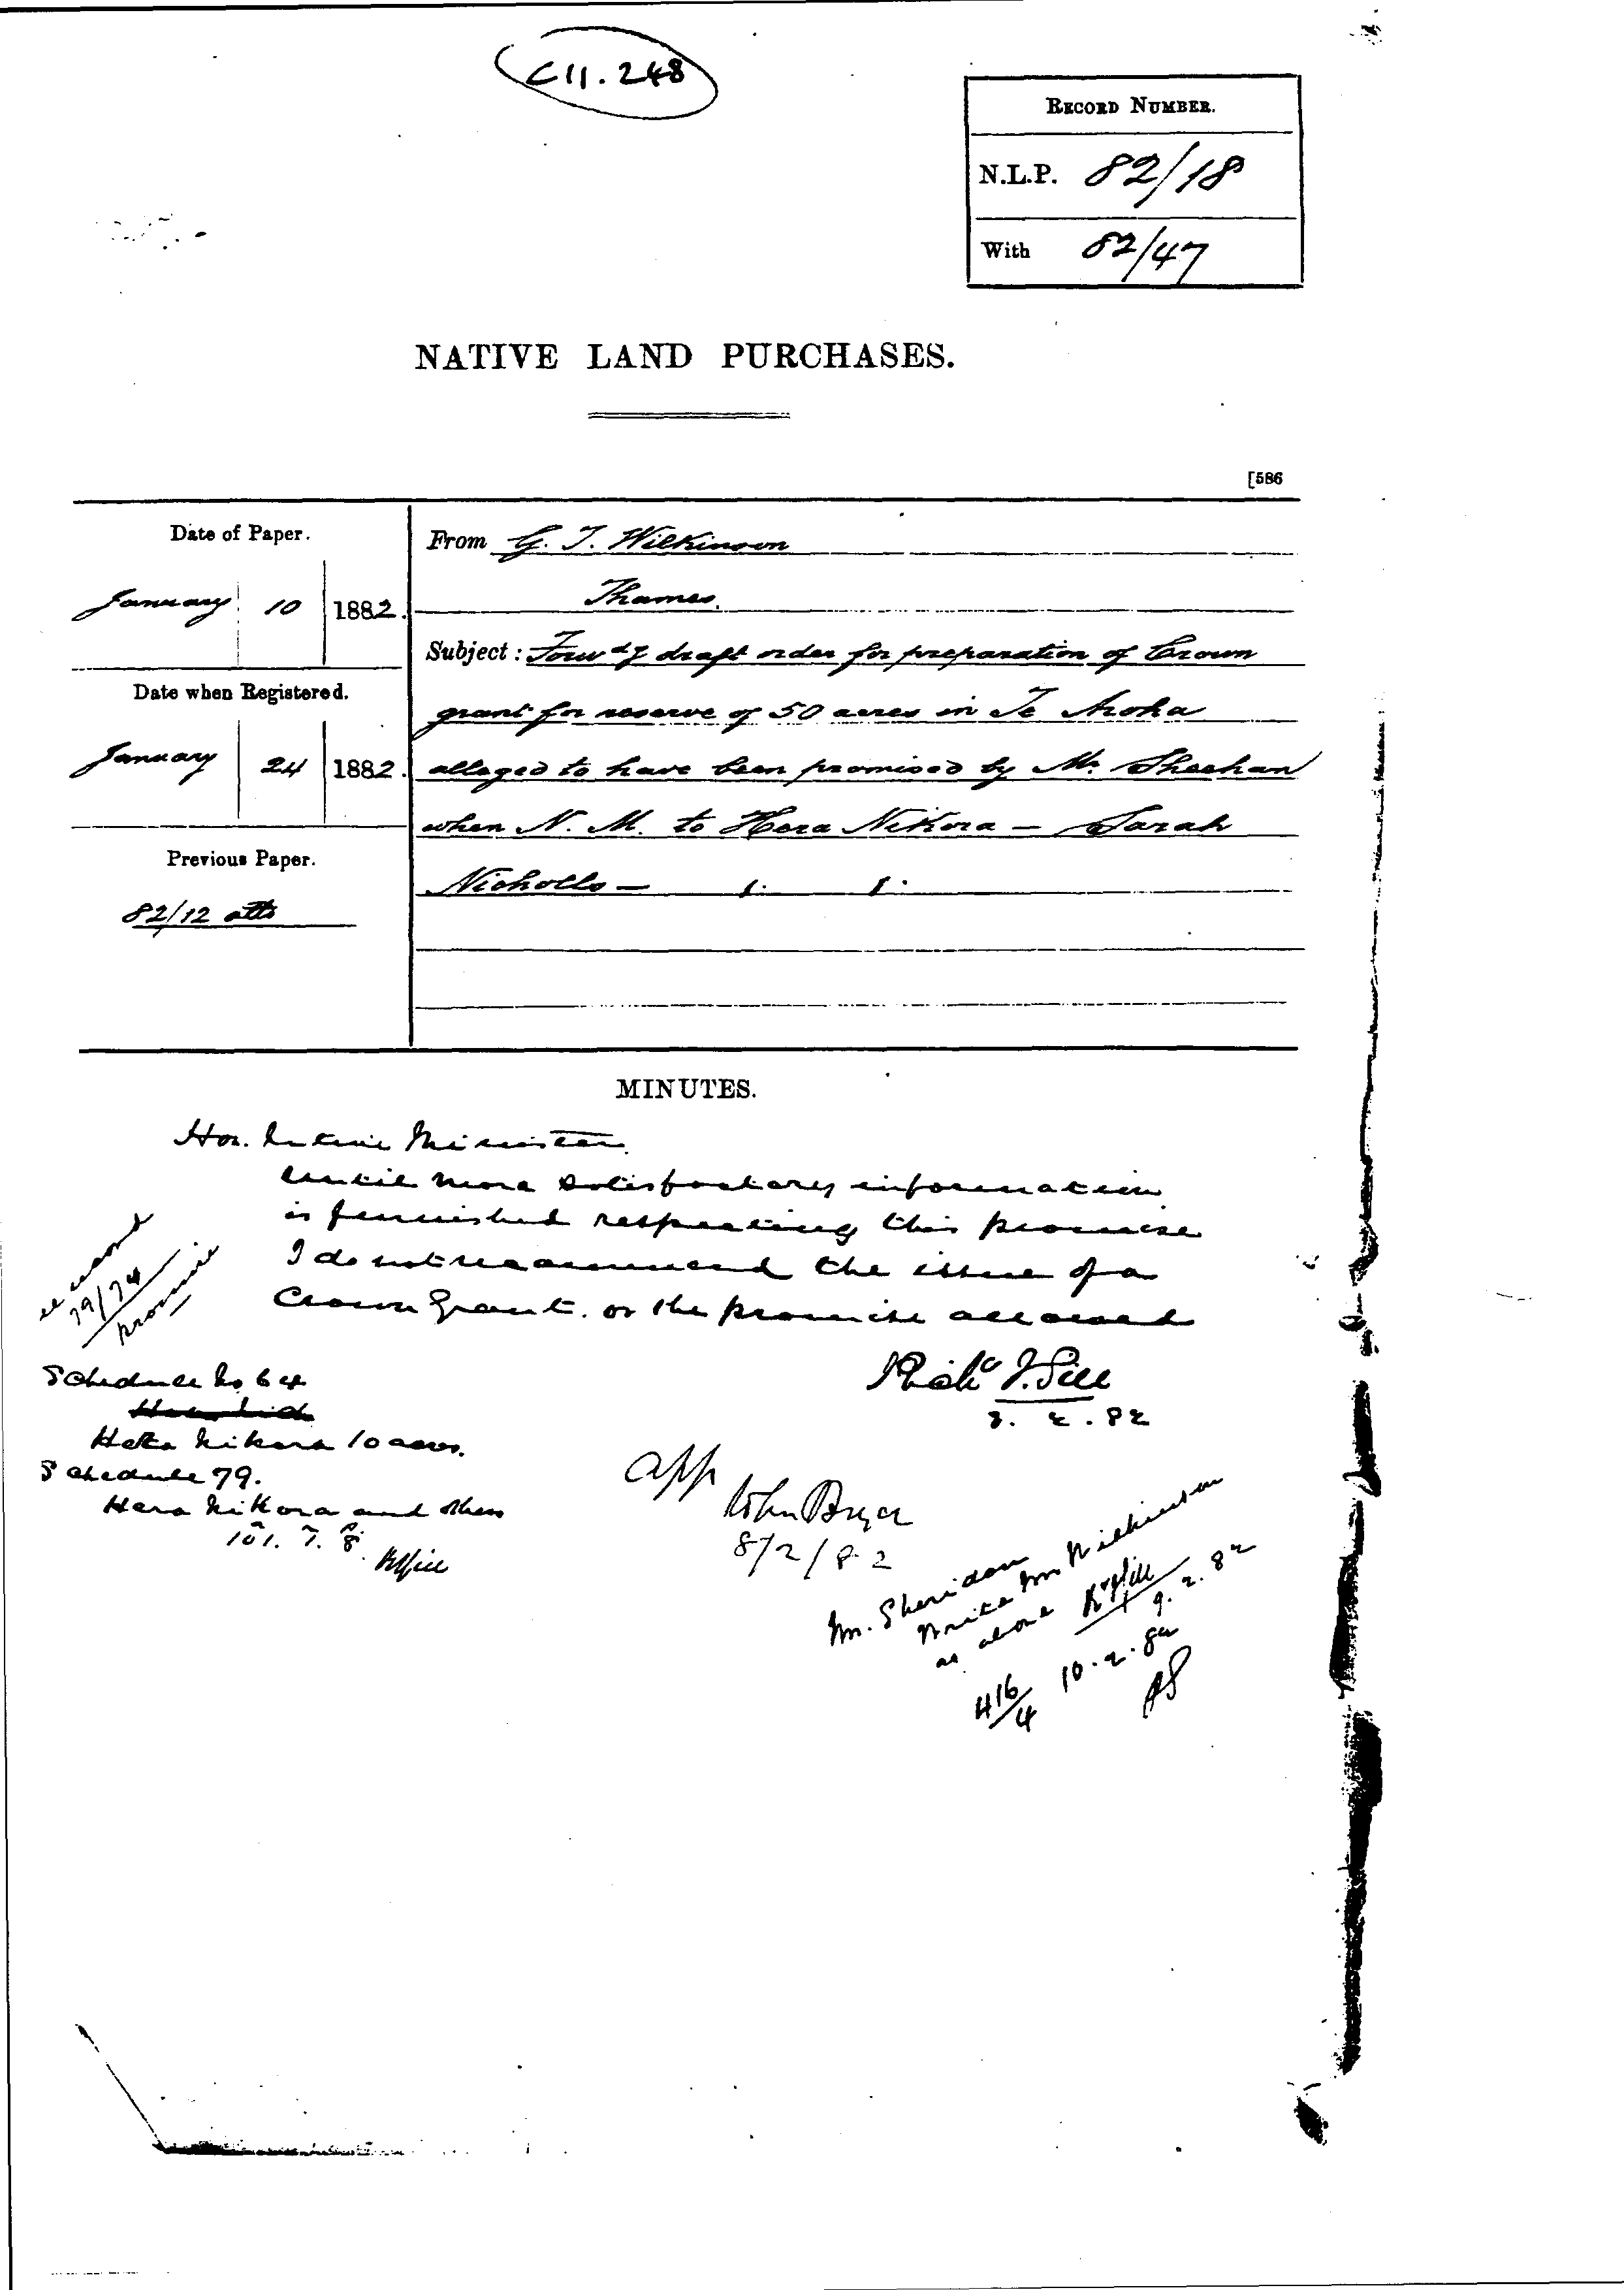 C11.248
RECORD NUMBER.
N.L.P. 82/18
With 82/47
NATIVE LAND PURCHASES.
[586
Date of Paper.
January 10 1882.
Date when Registered.
January 24 1882.
Previous Paper.
82/12 atts
From G. T. Wilkinson
Thames.
Subject: Forwdg draft order for preparation of Crown
grant for reserve of 50 acres in Te Aroha
alleged to have been promised by Mr Sheehan
when N. M. to Hera Nikora – Sarah
Nicholls –
MINUTES.
Hon. Native Minister.
Until more satisfactory information
is furnished respecting this promise
I do not recommend the issue of a
Crown Grant. or the promise allowed
Richd J. Gill
8. 2. 82
record
79/74
promise
Schedule No 64
Heta Nikora 10 acres.
Schedule 79.
Hera Nikora and others
101. 7. 8.
RJGill
app
John Bryce
8/2/82
Mr. Sheridan
Write Mr Wilkinson
as above RJGill
9. 2. 82
416/4 10.2.82
PS